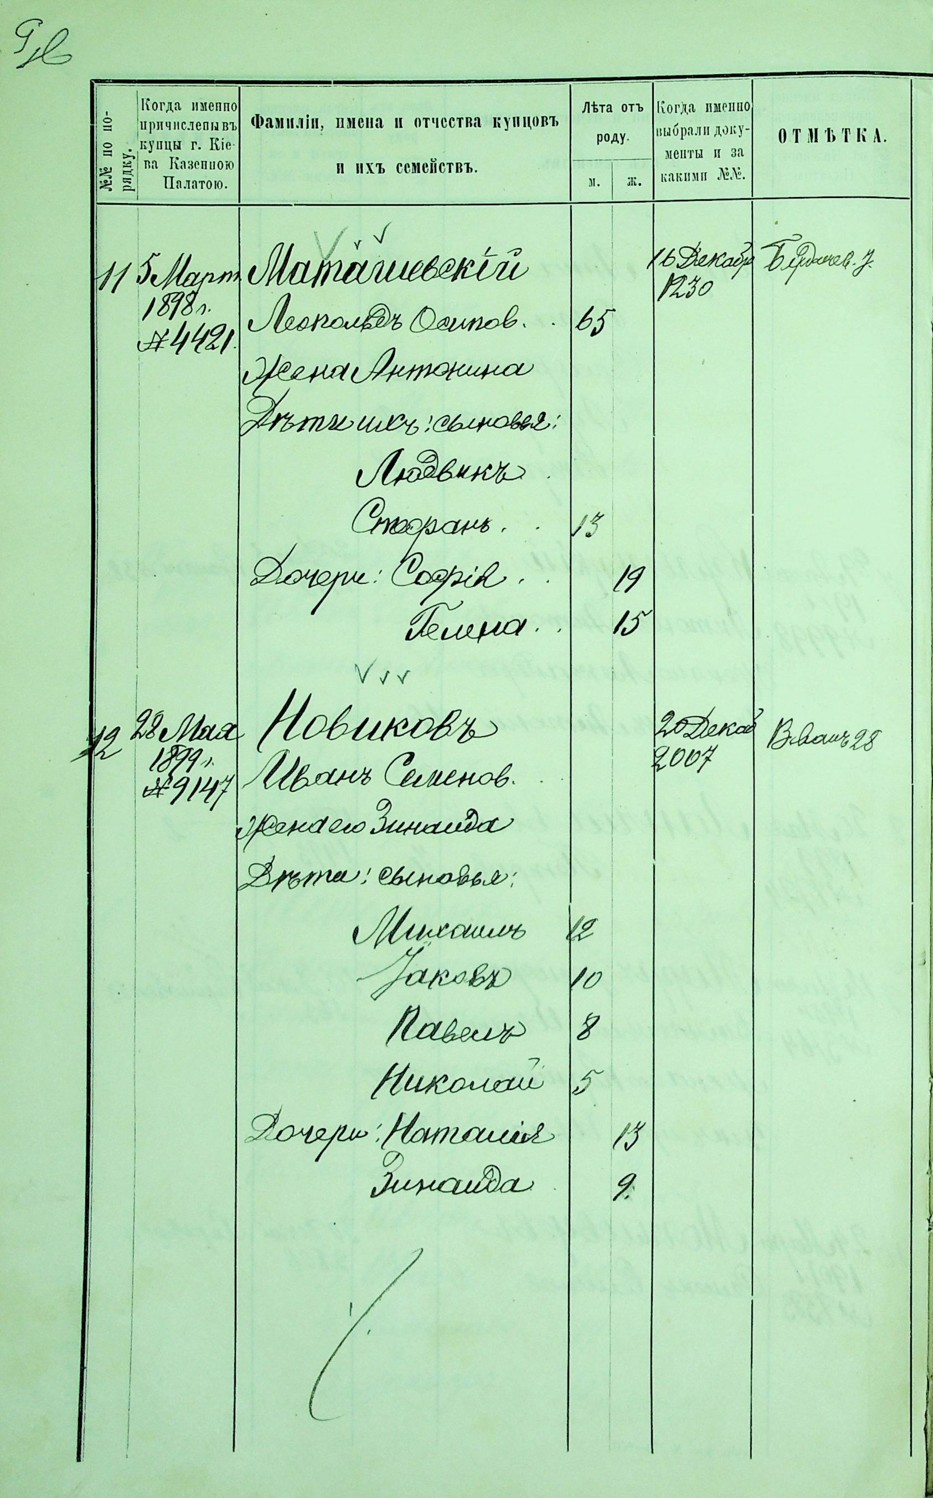 №№ по по-
рядку.
Когда именно
причислены въ
купцы г. Кіе-
ва Казенною
Палатою.
Фамиліи, имена и отчества купцовъ
и ихъ семействъ.
Лѣта отъ
роду.
м.
ж.
Когда именно
выбрали доку-
менты и за
какими №№.
ОТМѢТКА.
11 5 Март. Маташевскій 16 Декабр
1898 г. 1230
№ 4421. Леопольдъ Осипов. 65
Жена Антонина
Дѣти ихъ: сыновья:
Людвикъ
Стефанъ 13
Дочери: Софія 19
Гелена 15
12 28 Мая Новиковъ 20 Декаб
1899 г. 2007
№ 9147 Иванъ Семенов.
Жена его Зинаида
Дѣти: сыновья:
Михаилъ 12
Яковъ 10
Павелъ 8
Николай 5
Дочери: Наталія 13
Зинаида 9.